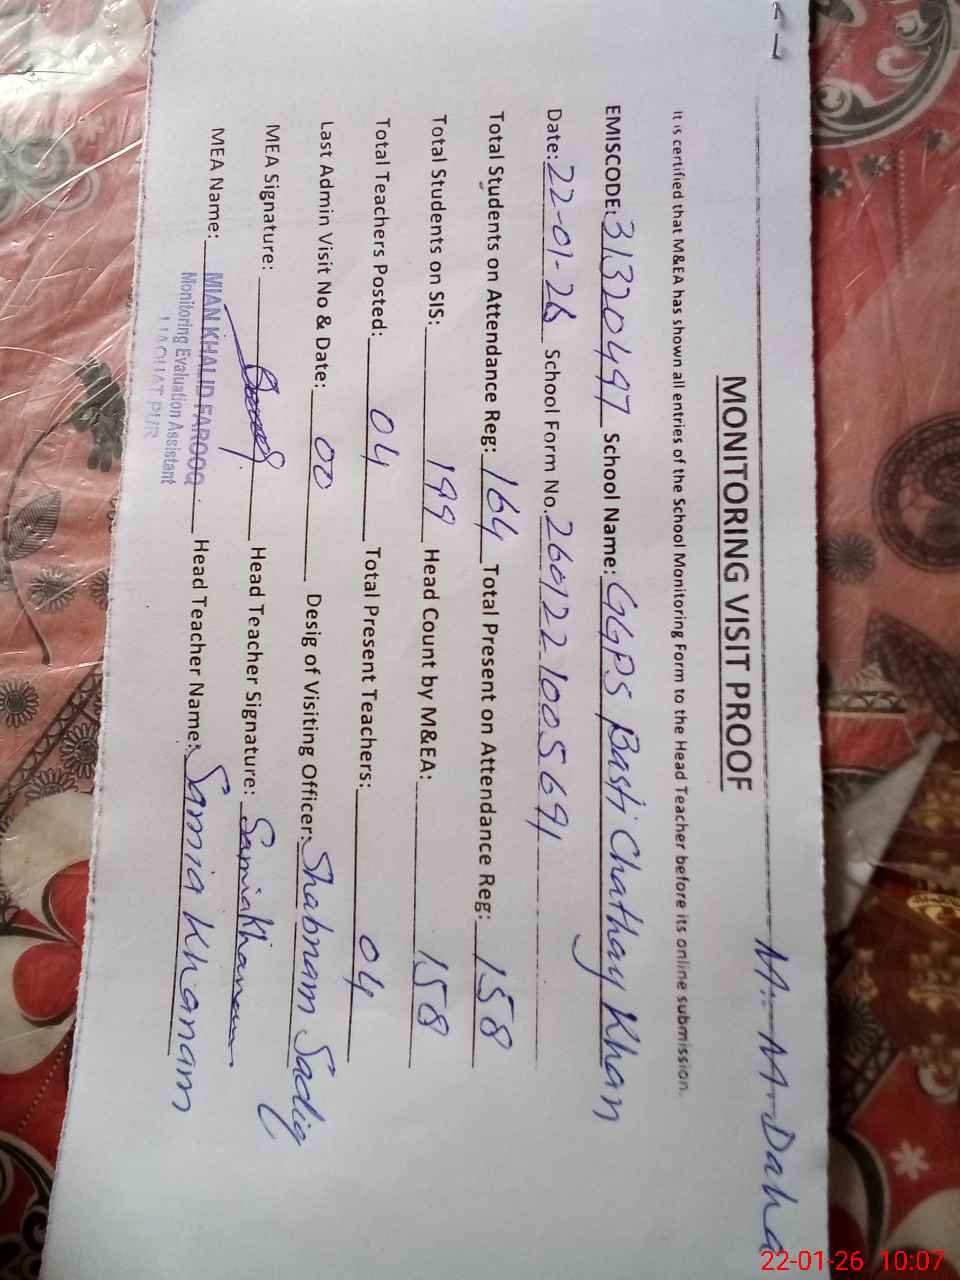 M. M. Daha
MONITORING VISIT PROOF
It is certified that M&EA has shown all entries of the School Monitoring Form to the Head Teacher before its online submission.
EMISCODE: 31320497 School Name: GGPS Basti Chathay Khan
Date: 22-01-26 School Form No. 2601221005691
Total Students on Attendance Reg: 164 Total Present on Attendance Reg: 158
Total Students on SIS: 199 Head Count by M&EA: 158
Total Teachers Posted: 04 Total Present Teachers: 04
Last Admin Visit No & Date: 00 Desig of Visiting Officer: Shabnam Sadiq
MEA Signature: Head Teacher Signature: Samia Khanam
MEA Name: MIAN KHALID FAROOQ Head Teacher Name: Samia Khanam
Monitoring Evaluation Assistant
LIAQUAT PUR
22-01-26 10:07